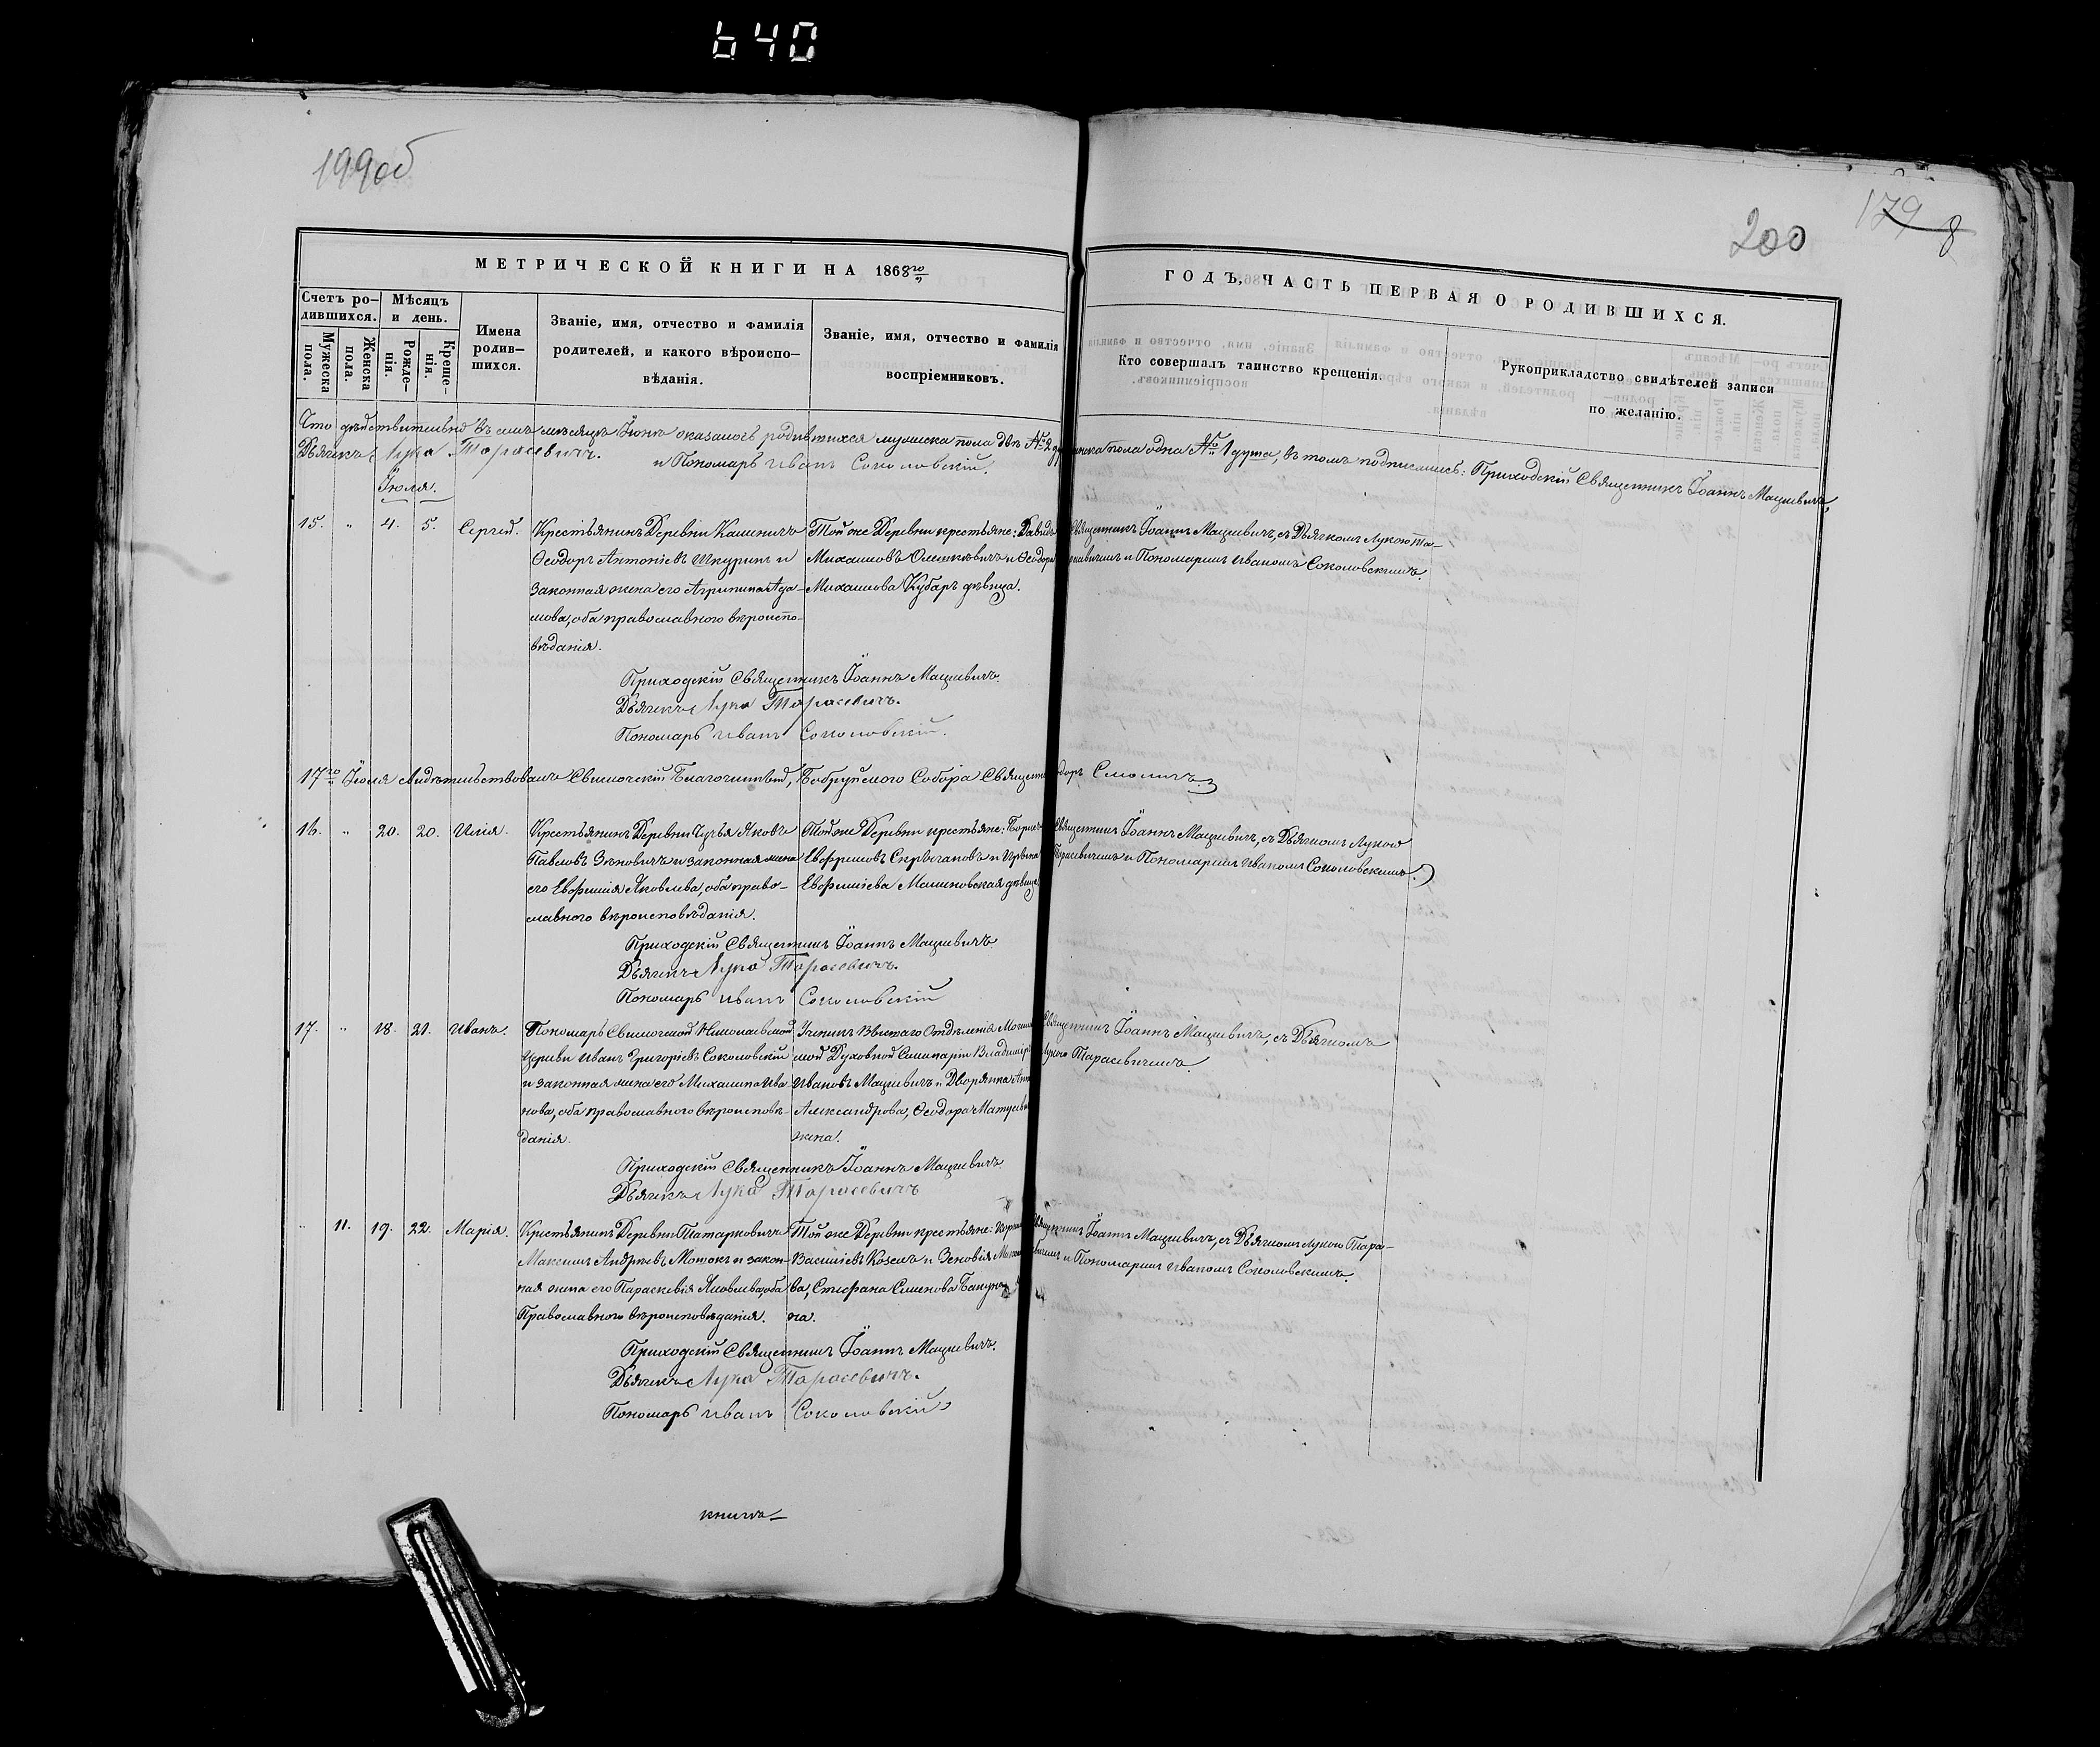 640
199об
200
179
8
МЕТРИЧЕСКОЙ КНИГИ НА 1868го
ГОДЪ, ЧАСТЬ ПЕРВАЯ О РОДИВШИХСЯ.
Счетъ ро-
дившихся.
Мѣсяцъ
и день.
Мужеска
пола.
Женска
пола.
Рожде-
нія.
Креще-
нія.
Имена
родив-
шихся.
Званіе, имя, отчество и фамилія
родителей, и какого вѣроиспо-
вѣданія.
Званіе, имя, отчество и фамилія
воспріемниковъ.
Кто совершалъ таинство крещенія.
Рукоприкладство свидѣтелей записи
по желанію.
Что дѣйствительно въ семъ мѣсяцѣ Іюнѣ оказалось родившихся мужеска пола двѣ № 2 пола одна № 1 душа, въ томъ подписались: Приходскій Священникъ Іоаннъ Мацкевичъ,
Дьячекъ Лука Тарасевичъ. и Пономарь Иванъ Соколовскій.
Іюля.
15. " 4. 5. Сергей. Крестьянинъ Деревни Той же Деревни крестьяне: Давидъ Священникъ Іоаннъ Мацкевичъ, съ Дьячкомъ Лукою Та-
Ѳеодоръ Антоніевъ Шкуринъ и Михаиловъ и Ѳеодора и Пономаремъ Иваномъ Соколовскимъ.
законная жена его Агрипина Ада- Михаилова Кубаръ дѣвица.
мова, оба православнаго вѣроиспо-
вѣданія.
Приходскій Священникъ Іоаннъ Мацкевичъ.
Дьячекъ Лука Тарасевичъ.
Пономарь Иванъ Соколовскій.
17го Іюля свидѣтельствовалъ Свислочскій Благочинный, Бобруйскаго Собора Смоличъ
16. " 20. 20. Илія. Крестьянинъ Деревни Яковъ Той же Деревни крестьяне: Священникъ Іоаннъ Мацкевичъ, съ Дьячкомъ Лукою
Павловъ Зеновичъ и законная жена и Тарасевичемъ и Пономаремъ Иваномъ Соколовскимъ.
его Евфимія Яковлева, оба право- Евфиміева Малиновская дѣвица.
славнаго вѣроисповѣданія.
Приходскій Священникъ Іоаннъ Мацкевичъ
Дьячекъ Лука Тарасевичъ.
Пономарь Иванъ Соколовскій
17. " 18. 21. Иванъ. Пономарь Свислочской Николаевской Ученикъ Отдѣленія Священникъ Іоаннъ Мацкевичъ, съ Дьячкомъ
Церкви Иванъ Григоріевъ Соколовскій Духовной Семинаріи Владиміръ Лукою Тарасевичемъ.
и законная жена его Михалина Ива- Ивановъ Мацкевичъ и Дворянка Анна
нова, оба православнаго вѣроисповѣ- Александрова, Ѳеодора
данія. жена.
Приходскій Священникъ Іоаннъ Мацкевичъ
Дьячекъ Лука Тарасевичъ
" 11. 19. 22. Марія. Крестьянинъ Деревни Татарковичъ Той же Деревни крестьяне: Священникъ Іоаннъ Мацкевичъ, съ Дьячкомъ Лукою Тара-
Максимъ Андреевъ и закон- Василіевъ Козелъ и Зеновія и Пономаремъ Иваномъ Соколовскимъ.
ная жена его Параскевія Яковлева, оба ва, Стефана Семенова
Православнаго вѣроисповѣданія. на.
Приходскій Священникъ Іоаннъ Мацкевичъ.
Дьячекъ Лука Тарасевичъ.
Пономарь Иванъ Соколовскій